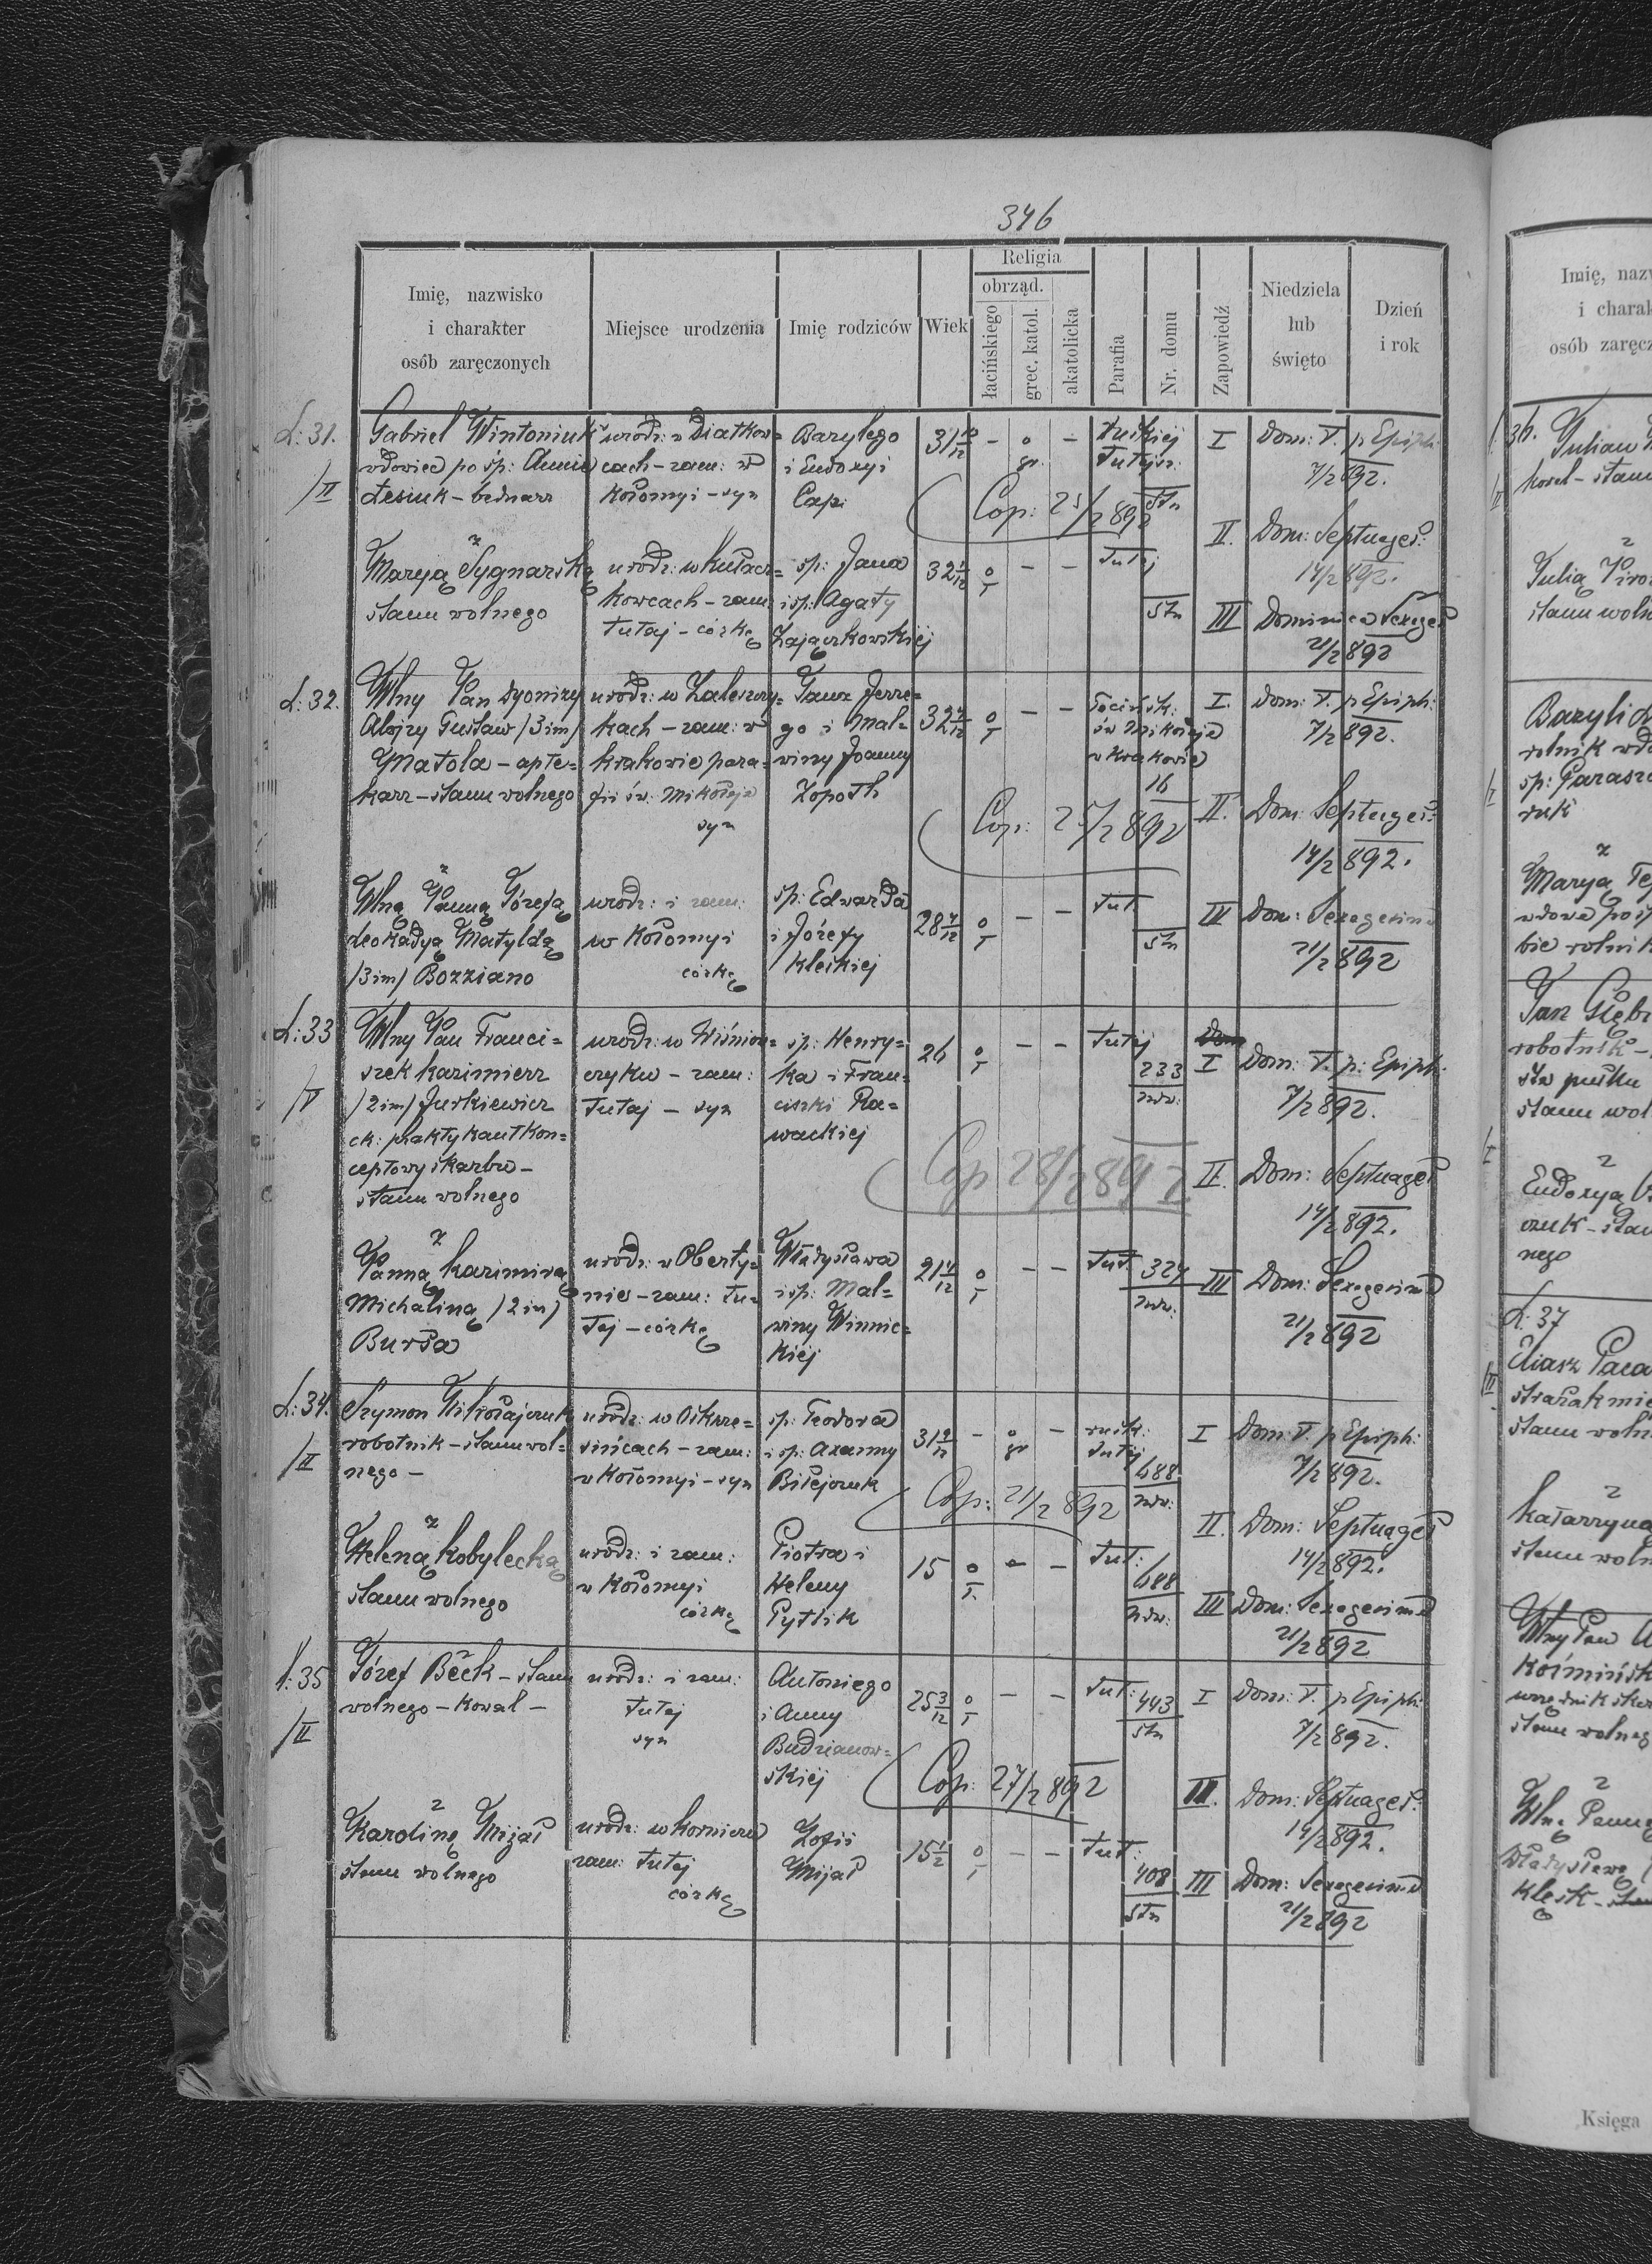 346
Imię, nazwisko
i charakter
osób zaręczonych
Miejsce urodzenia
Imię rodziców
Wiek
Religia
obrząd.
łacińskiego
grec. katol.
akatolicka
Parafia
Nr. domu
Zapowiedź
Niedziela
lub
święto
Dzień
i rok
L: 31.
/II
Gabriel Wintoniuk
wdowiec po śp: Annie
Łesiuk - bednarz
urodz: w Diatkow=
cach - zam: w
Kołomyi - syn
Bazylego
i Eudoxyi
Capi
31 10/12 - o gr. -
tutejsz:
Stn
I Dom: V. p Epiph:
7/2 892.
Cop: 25/2 892
II. Dom: Septuages:
14/2 892.
z
Maryą Sygnarską
stanu wolnego
urodz: w Kułacz=
kowcach - zam:
tutaj - córką
śp: Jana
i śp: Agaty
Zajączkowskiej
32 1/12 o/ł - -
tutej
Stn
III Dominica Sexages
21/2 892
L: 32.
Wlny Pan Dyonizy
Alojzy Gustaw /3 im/
Matola - apte=
karz - stanu wolnego
urodz: w Zaleszczy=
kach - zam: w
Krakowie para=
fii św: Mikołaja
syn
Jerze=
go i Mal=
winy Joanny
Zopoth
o/ł - -
św Mikołaja
w Krakowie
16
I. Dom: V. p Epiph:
7/2 892.
Cop: 25/2 892
II. Dom: Septuages:
14/2 892.
z
Wlną Panną Józefą
Leokadyą Matyldą
/3 im/ Bozziano
urodz: i zam:
w Kołomyi
córką
śp: Edwarda
i Józefy
Kleskiej
28 4/12 o/ł - -
tut.
Stn
III Dom: Sexagesima
21/2 892
L: 33
/V
Wlny Pan Franci=
szek Kazimierz
/2 im/ Jurkiewicz
ck: praktykant kon=
ceptowy skarbu -
stanu wolnego
urodz: w Wiśniow=
czyku - zam:
tutaj - syn
śp: Henry=
ka i Fran=
ciszki Ra=
wackiej
26 o/ł - -
tutej
233
ndw:
I Dom: V. p: Epiph:
7/2 892.
Cop 28/2 892
II. Dom: Septuages
14/2 892.
z
Panną Kazimirą
Michaliną /2 im/
Bursa
urodz: w Oberty=
nie - zam: tu=
tej - córką
Władysława
i śp: Mal=
winy Winnic=
kiej
21 4/12 o/ł - -
tut.
324
ndw:
III Dom: Sexagesima
21/2 892
L: 34.
/II
Szymon Mikołajczuk
robotnik - stanu wol=
nego -
urodz: w Oskrze=
sińcach - zam:
w Kołomyi - syn
śp: Teodora
i śp: Axanny
Bilejczuk
31 9/12 - o gr -
rusk:
tutej
488
ndw:
I Dom: V. p Epiph:
7/2 892.
Cop: 21/2 892
II. Dom: Septuages
14/2 892.
z
Heleną Kobylecką
stanu wolnego
urodz: i zam:
w Kołomyi
córką
Piotra i
Heleny
Pytlik
15 o/ł - -
tut:
488
ndw:
III Dom: Sexagesima
21/2 892
L: 35
/II
Józef Beck - stanu
wolnego - kowal -
urodz: i zam:
tutej
syn
Antoniego
i Anny
Budzianow=
skiej
25 3/12 o/ł - -
tut:
443
Stn
I Dom: V. p Epiph:
7/2 892.
Cop: 27/2 892
II. Dom: Septuages:
14/2 892.
z
Karoliną Mijał
stanu wolnego
urodz: w Korniczu
zam: tutej
córką
Zofii
Mijał
15 1/2 o/ł - -
tut:
408
Stn
III Dom: Sexagesima
21/2 892
Imię, naz
i charak
osób zaręcz
36.
Julian
kowal - stanu
z
Julią
stanu woln
Bazyli
rolnik wd
śp: Parasz
z
Maryą
wdowa po śp
bie rolnik
Jan
robotnik -
stanu wol
z
Eudoxyą
czuk - stan
nego
L: 37
Eliasz
strażak mie
stanu woln
z
Katarzyną
stanu woln
Wlny Pan
Kośmińsk
stanu wolneg
z
Wlną Panną
Władysławą
Klesk
Księga